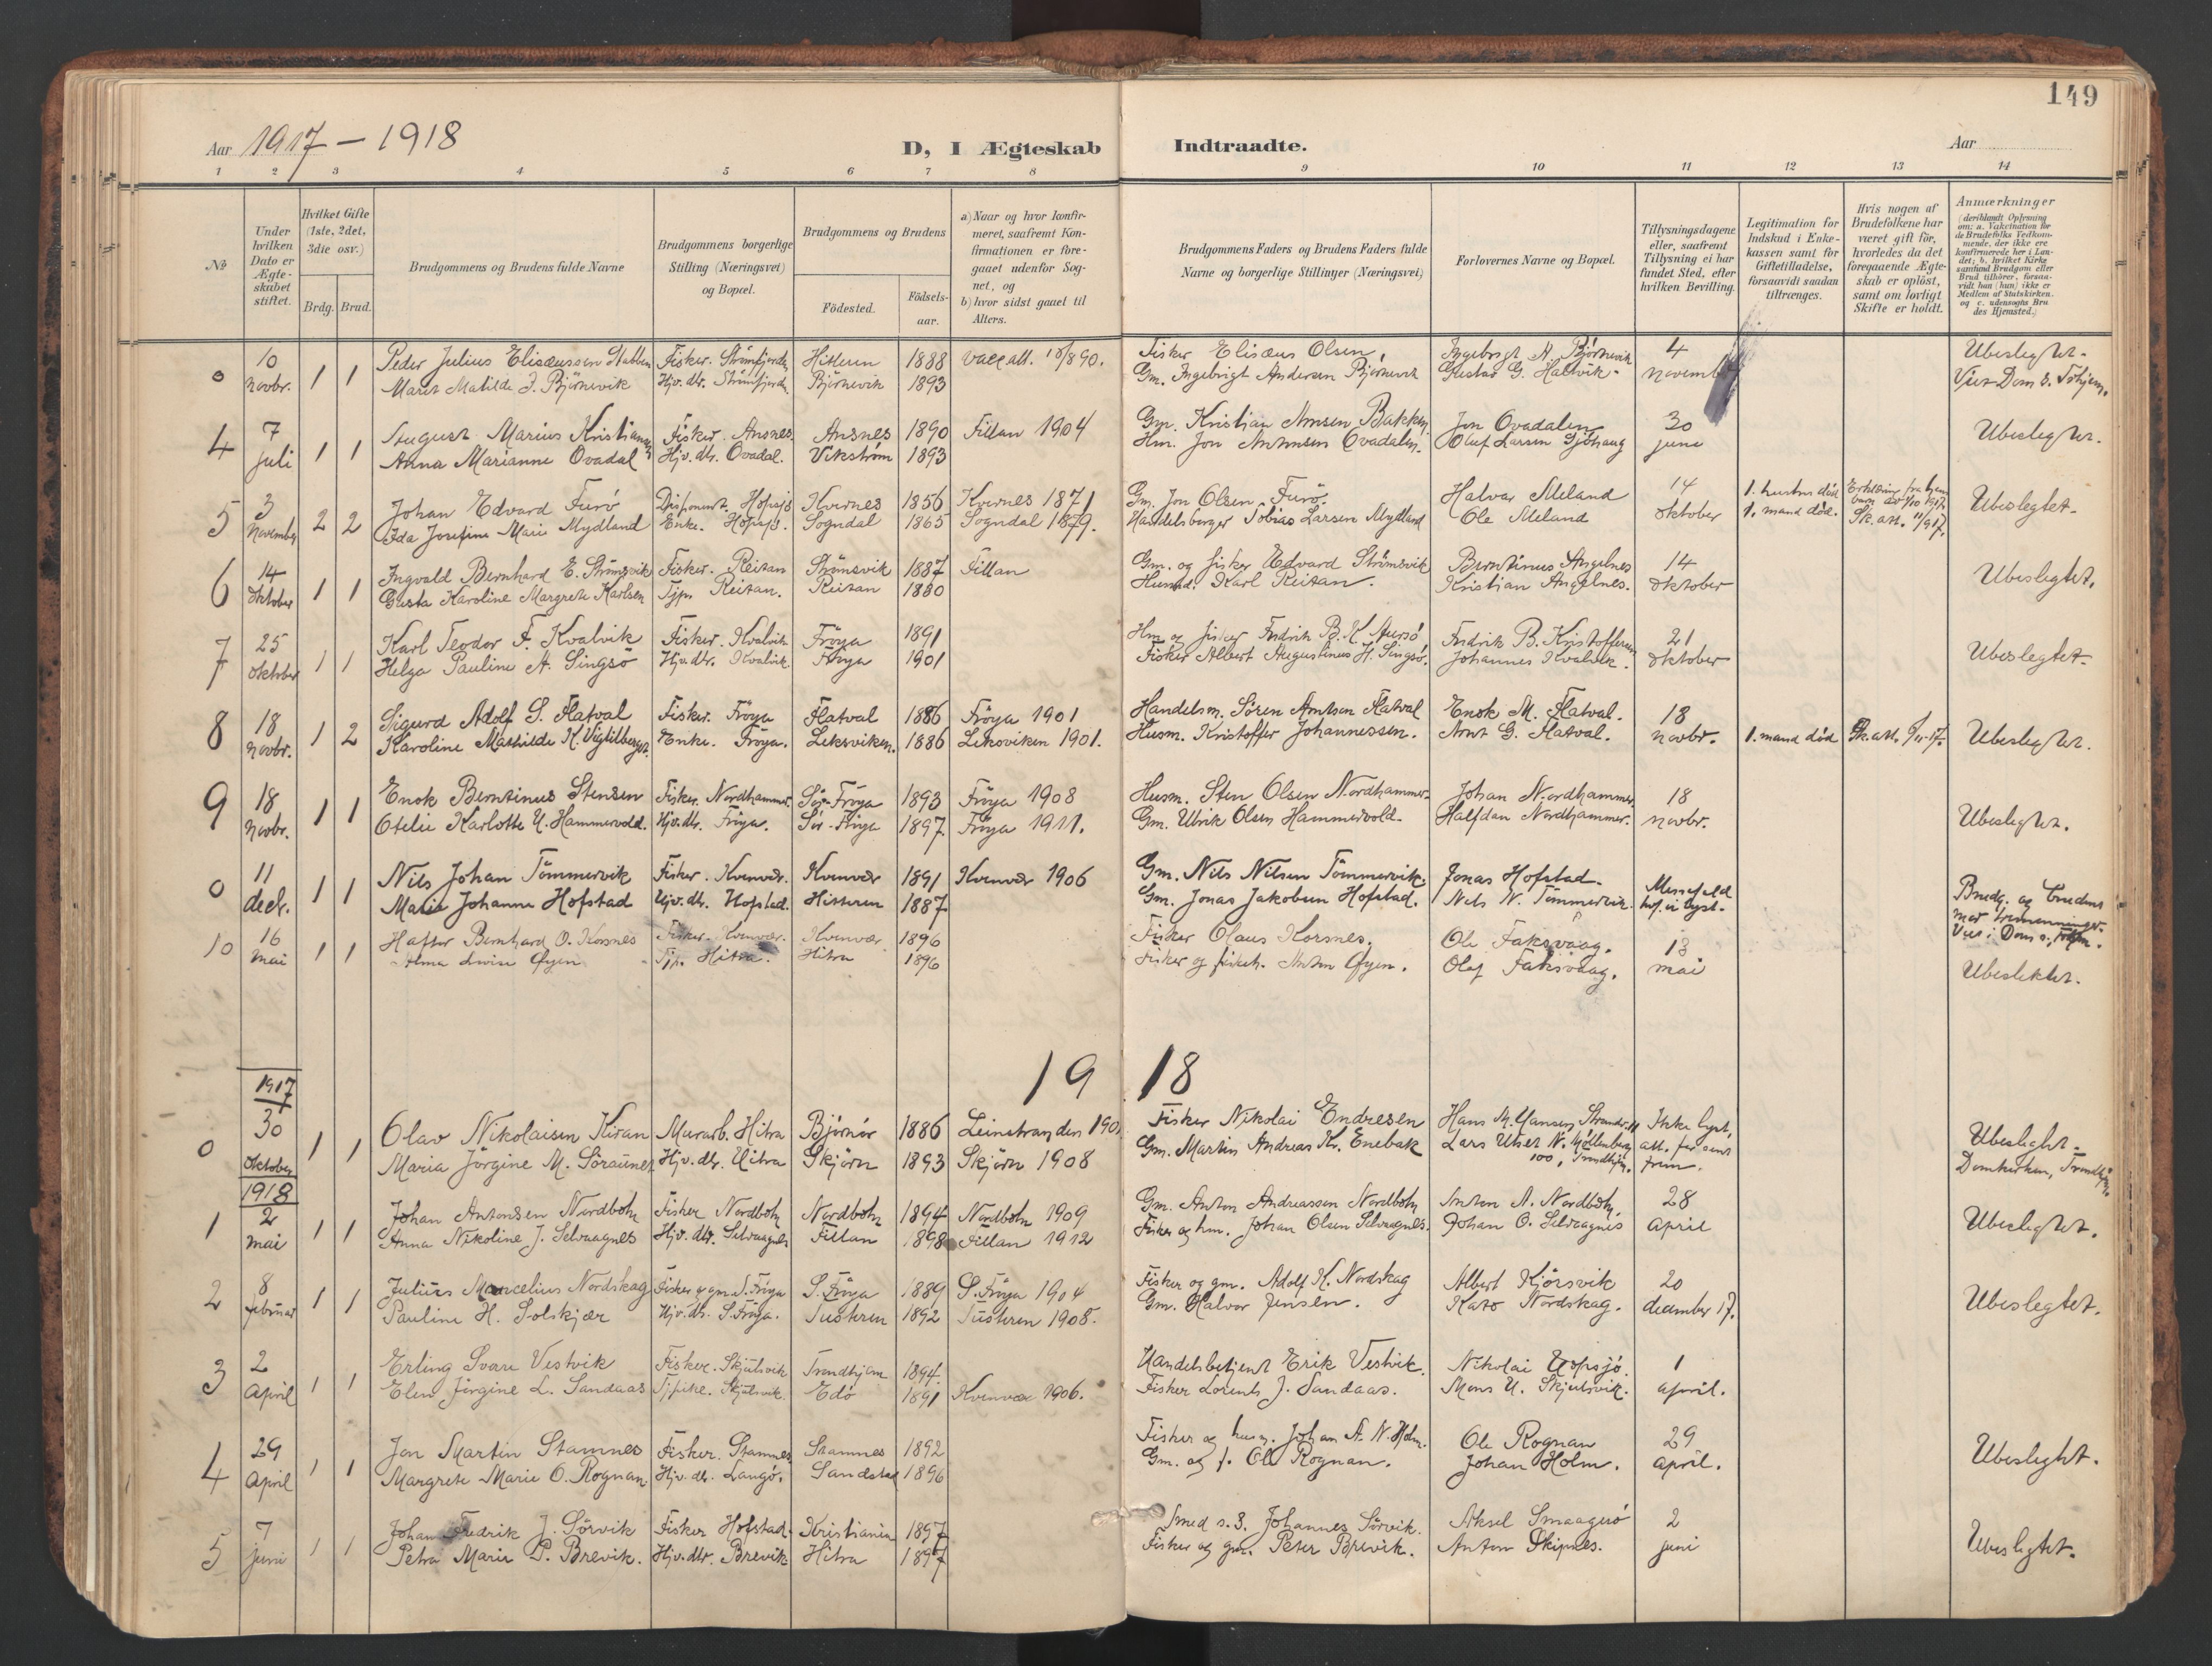 149
Aar 1917 – 1918
D, I Ægteskab Indtraadte.
Aar
1 2 3 4 5 6 7 8 9 10 11 12 13 14
№
Under hvilken Dato er Ægteskabet stiftet.
Hvilket Gifte (1ste, 2det, 3die osv.)
Brdg. Brud.
Brudgommens og Brudens fulde Navne
Brudgommens borgerlige Stilling (Næringsvei) og Bopæl.
Brudgommens og Brudens
Födested.
Födsels-aar.
a) Naar og hvor konfir-
meret, saafremt Kon-
firmationen er fore-
gaaet udenfor Sog-
net, og
b) hvor sidst gaaet til
Alters.
Brudgommens Faders og Brudens Faders fulde
Navne og borgerlige Stillinger (Næringsvei)
Forlovernes Navne og Bopæl.
Tillysningsdagene
eller, saafremt
Tillysning ei har
fundet Sted, efter
hvilken Bevilling.
Legitimation for
Indskud i Enke-
kassen samt for
Giftetilladelse,
forsaavidt saadan
tiltrænges.
Hvis nogen af
Brudefolkene har
været gift för,
hvorledes da det
foregaaende Ægte-
skab er oplöst,
samt om lovligt
Skifte er holdt.
Anmærkninger
(deriblandt Oplysning
om: a. Vakcination for
de Brudefolks Vedkom-
mende, der ikke ere
konfirmerede her i Lan-
det; b. hvilket Kirke
samfund Brudgom eller
Brud tilhörer, forsaa-
vidt han (hun) ikke er
Medlem af Statskirken.
og c. udensogns Bru
des Hjemsted.)
0 10 novbr. 1 1 Peder Julius Elisæussen Stabben Fisker. Strömfjorden Hitteren 1888 Vacc att. 18/8 90. Fisker Elisæus Olsen, Ingebrigt A. Björnevik 4 november Ubeslegtet.
Maret Matilde I. Björnevik Hjv. dtr. Strömfjorden Björnevik 1893 Gm. Ingebrigt Andersen Björnevik Gustav G. Hallvik. Viet Dom s. Tröhjem.
4 7 juli 1 1 August Marius Kristiansen Fisker. Ansnes. Ansnes 1890 Fillan 1904 Gm. Kristian Arnsen Bakken Jon Ovadalen 30 june Ubeslegtet.
Anna Marianne Ovadal Hjv. dtr. Ovadal. Vikström 1893 Hm. Jon Antonsen Ovadalen. Oluf Larsen Sjöhaug
5 3 November 2 2 Johan Edvard Furö Disponent. Hopsjö Kvernes 1856 Kvernes 1871 Gm. Jon Olsen Furö. Halvar Meland 14 oktober 1. hustru död Ubeslegtet.
Ida Josefine Marie Mydland Enke. Hopsjö. Sogndal 1865 Sogndal 1879. Handelsborger Tobias Larsen Mydland Ole Meland 1. mand död. Sk. att. 11/9 17.
6 14 oktober 1 1 Ingvald Bernhard E. Strömsvik Fisker. Reitan Strömsvik 1887 Fillan Gm. og fisker Edvard Strömsvik Berntinus Angelnes 14 oktober Ubeslegtet.
Gusta Karoline Margrete Karlsen Tjp. Reitan. Reitan 1880 Husmd. Karl Reitan. Kristian Angelnes.
7 25 oktober 1 1 Karl Teodor F. Kvalvik Fisker. Kvalvik Fröya 1891 Hm og fisker Fredrik B. K. Aursö Fredrik B. Kristoffersen 21 oktober Ubeslegtet.
Helga Pauline A. Singsö Hjv. dtr. Kvalvik. Fröya 1901 Fisker Albert Augustinus H. Singsö. Johannes Kvalvik.
8 18 novbr. 1 2 Sigurd Adolf S. Flatval Fisker. Fröya Flatval 1886 Fröya 1901 Handelsm. Sören Arntsen Flatval Enok M. Flatval. 18 novbr. 1. mand död Ubeslegtet.
Karoline Mathilde K. Vigtilberget. Enke. Fröya. Leksviken. 1886 Leksviken 1901. Husm. Kristoffer Johannessen. Arnt G. Flatval.
9 18 novbr. 1 1 Enok Berntinus Stensen Fisker. Nordhammer. Sör-Fröya 1893 Fröya 1908 Husm. Sten Olsen Nordhammer. Johan Nordhammer. 18 novbr. Ubeslegtet.
Otelie Karlotte U. Hammervold. Hjv. dtr. Fröya. Sör-Fröya 1897 Fröya 1911. Gm. Ulrik Olsen Hammervold. Halfdan Nordhammer.
0 11 decbr. 1 1 Nils Johan Tömmervik Fisker. Kvenvær. Kvenvær 1891 Kvenvær 1906 Gm. Nils Nilsen Tömmervik. Jonas Hofstad. Messefald Brudg. og bruden
Marie Johanne Hofstad Hjv. dtr. Hofstad. Hitteren 1887 Gm. Jonas Jakobsen Hofstad. Nels N. Tömmervik. lyst. Viet i Dom s.
10 16 mai 1 1 Haftor Bernhard O. Korsnes Fisker. Kvenvær. Kvenvær 1896 Fisker Olaus Korsnes. Ole Faksvaag. 13 mai Ubeslektet.
Alma Lovise Öyen Tjp. Hitra. Hitra 1896 Fisker og Anton Öyen. Olaf Faksvaag.
1918
1917
0 30 oktober 1 1 Olav Nikolaisen Kiran Murarb. Hitra Björnör 1886 Leinstranden Fisker Nikolai Endresen Hans M. Hansen Ikke lyst, Ubeslegtet.
Maria Jörgine M. Söraunet Hjv. dtr. Hitra Skjörn 1893 Skjörn 1908 Gm. Martin Andreas Kr. Enebak Lars Utset N. Möllenberg 100, Trondhjem. Domkirken, Trondhjem.
1918
1 2 mai 1 1 Johan Antonsen Nordbotn Fisker Nordbotn Nordbotn 1894 Nordbotn 1909 Gm. Anton Andreassen Nordbotn Anton A. Nordbotn, 28 april Ubeslegtet.
Anna Nikoline J. Selvaagnes Hjv. dtr. Selvaagnes Fillan 1898 Fillan 1912 Fisker og hm. Johan Olsen Selvaagnes. Johan O. Selvaagnes
2 8 februar 1 1 Julius Marcelius Nordskag Fisker og gm. S. Fröya S. Fröya 1889 S. Fröya 1904 Fisker og gm. Adolf K. Nordskag Albert Kjörsvik 20 december 17. Ubeslegtet.
Pauline H. Solskjær Hjv. dtr. S. Fröya. Tusteren 1892 Tusteren 1908. Gm. Halvor Jensen. Kato Nordskag.
3 2 April 1 1 Erling Sverre Vestvik Fisker. Skjulsvik Trondhjem 1894. Handelsbetjent Erik Vestvik. Nikolai Hopsjö. 1 april.
Elen Jörgine L. Sandaas Tjpike. Skjulsvik. Edö 1891 Kvenvær 1906. Fisker Lorents J. Sandaas. Mons H. Skjulsvik.
4 29 April 1 1 Jon Martin Stamnes Fisker. Stamnes Stamnes 1892 Fisker og husm. Johan A. N. Holm. Ole Rognan 29 april. Ubeslegtet.
Margrete Marie O. Rognan Hjv. dtr. Langö. Sandstad 1896 Gm. og f. Ole Rognan. Johan Holm.
5 7 juni 1 1 Johan Fredrik J. Sörvik Fisker Hofstad. Kristiania 1897 Smed s. s. Johannes Sörvik. Aksel Smaagesö 2 juni Ubeslegtet.
Petra Marie P. Brevik. Hjv. dtr. Brevik Hitra 1897 Fisker og gm. Peter Brevik. Anton Skipnes.